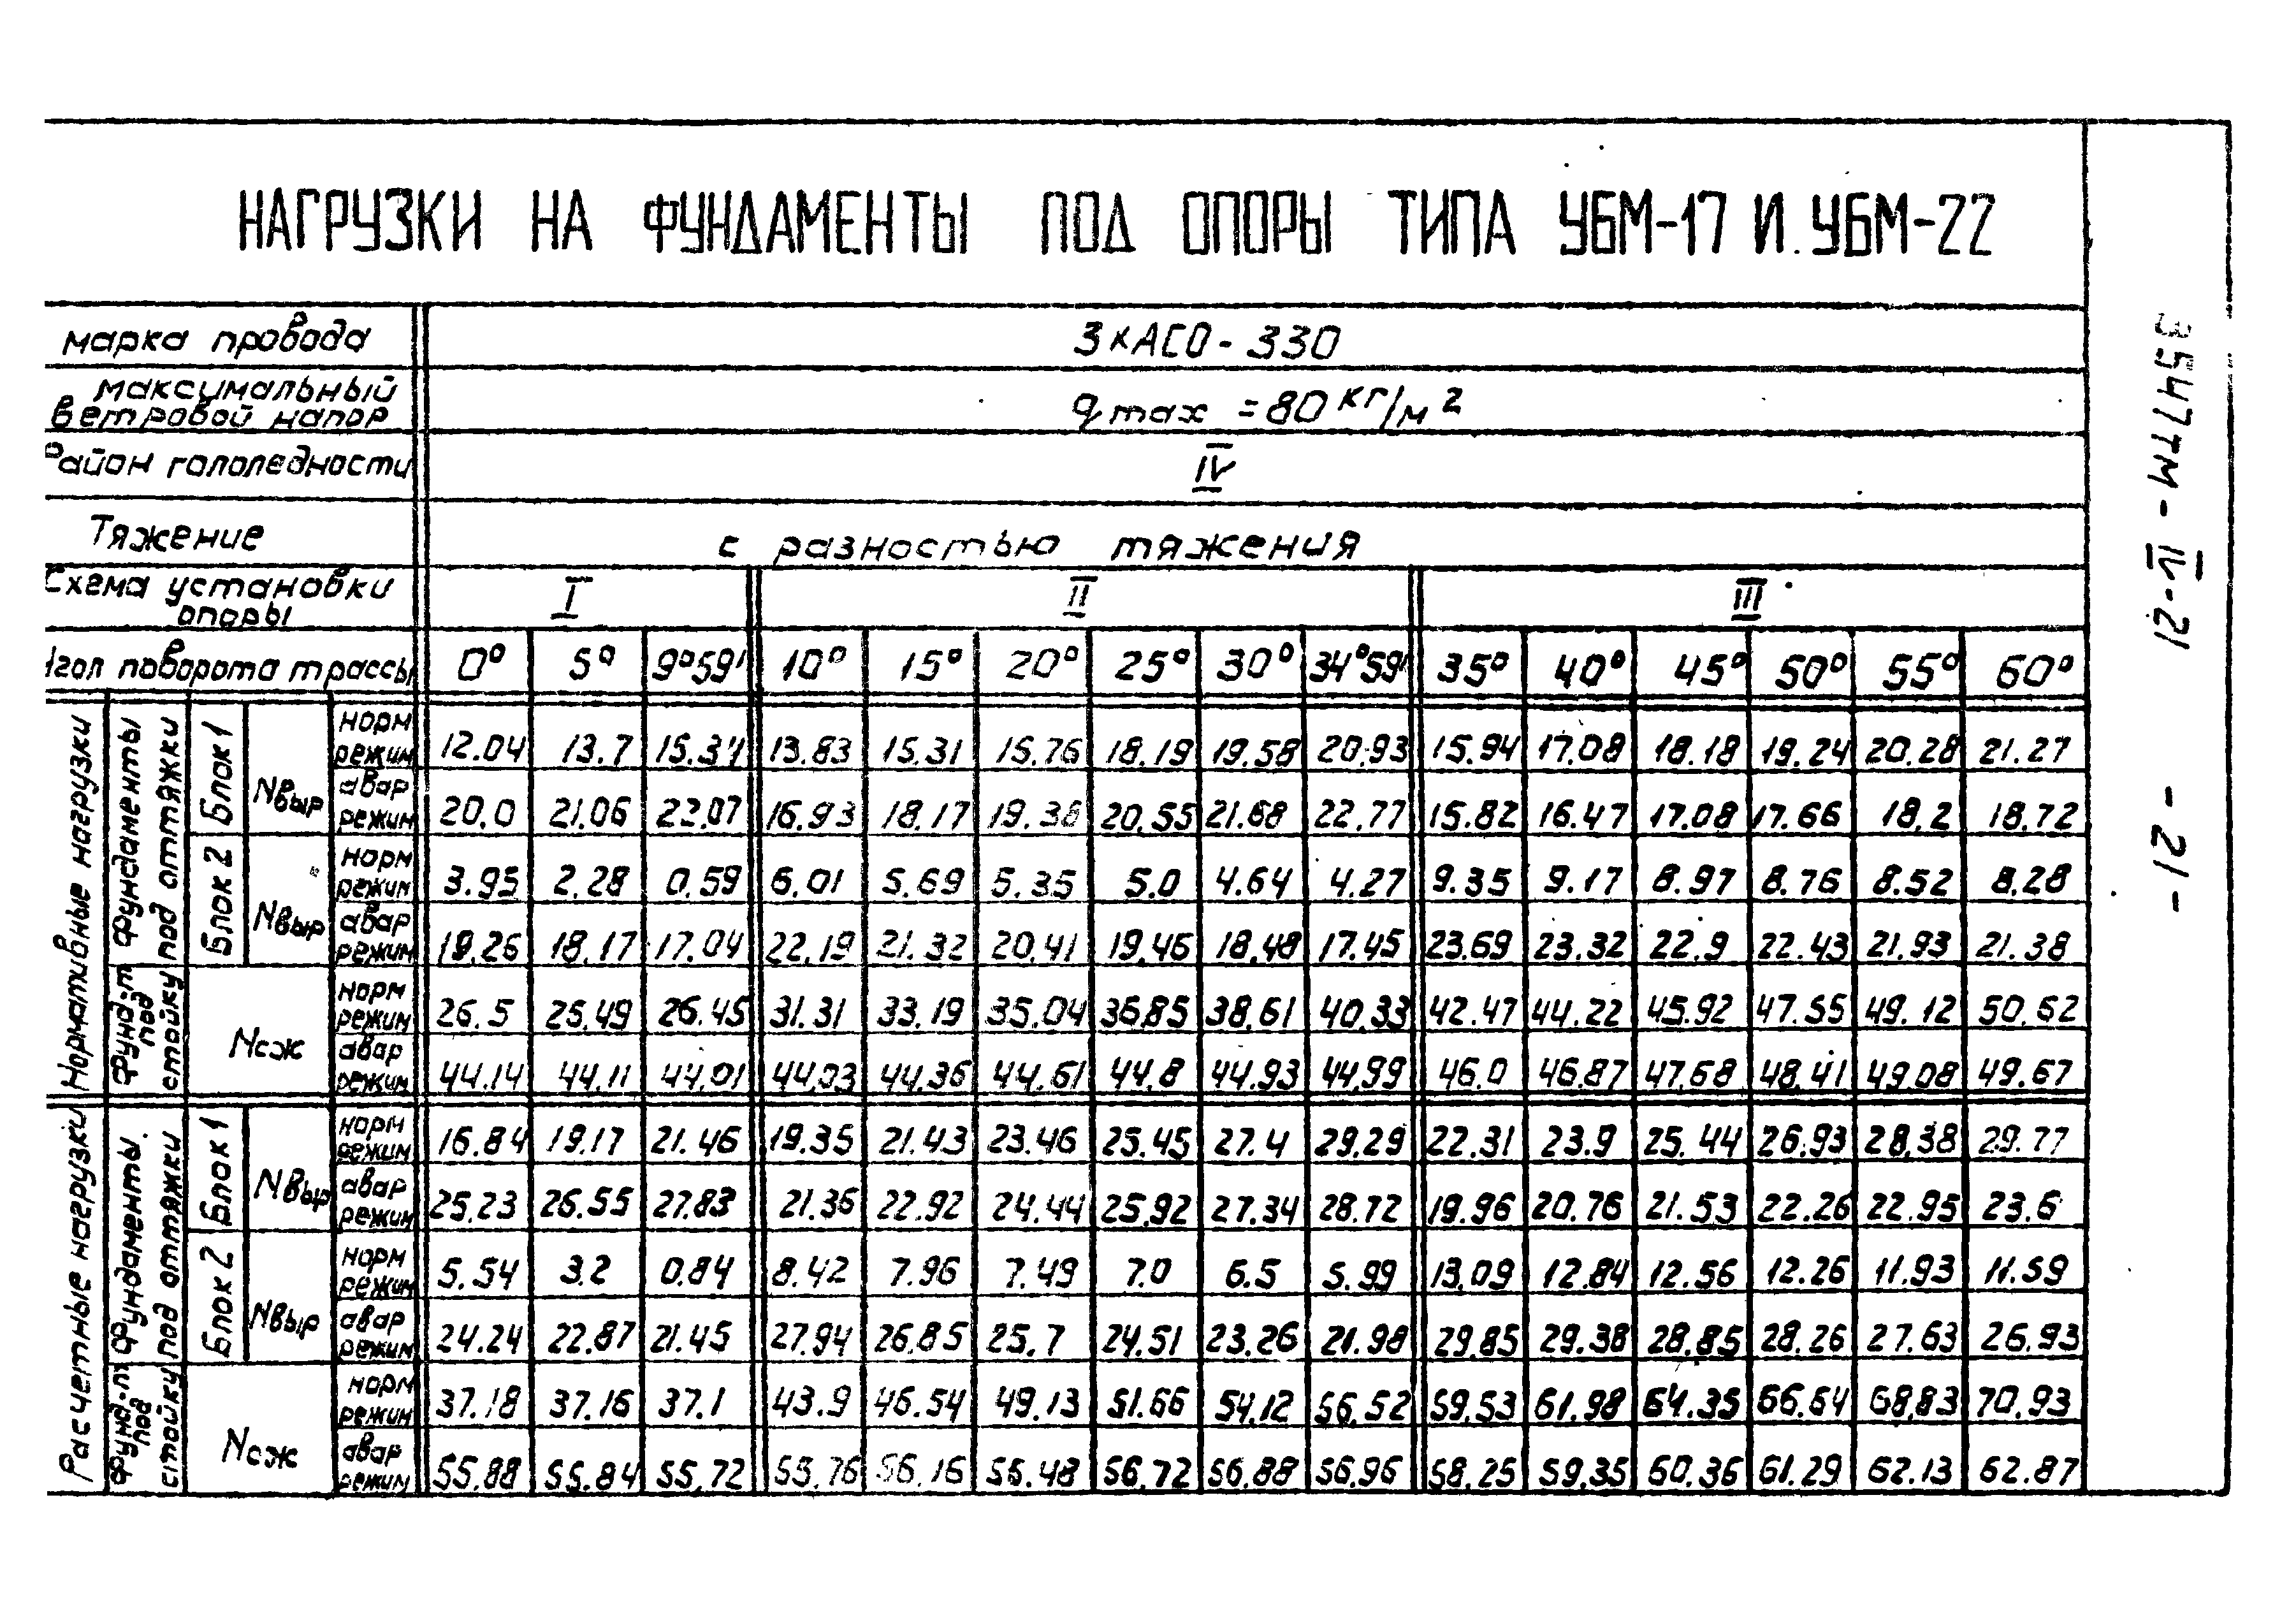 НАГРУЗКИ НА ФУНДАМЕНТЫ ПОД ОПОРЫ ТИПА УБМ-17 И УБМ-22
марка провода 3×АСО-330
максимальный ветровой напор q max = 80 кг/м²
Район гололедности IV
Тяжение с разностью тяжения
Схема установки опоры I II III
Угол поворота трассы 0° 5° 9°59' 10° 15° 20° 25° 30° 34°59' 35° 40° 45° 50° 55° 60°
Нормативные нагрузки
Фундаменты под оттяжки
Блок 1 Nвыр
норм режим 12.04 13.7 15.34 13.83 15.31 15.76 18.19 19.58 20.93 15.94 17.08 18.18 19.24 20.28 21.27
авар режим 20.0 21.06 22.07 16.93 18.17 19.38 20.55 21.68 22.77 15.82 16.47 17.08 17.66 18.2 18.72
Блок 2 Nвыр
норм режим 3.95 2.28 0.59 6.01 5.69 5.35 5.0 4.64 4.27 9.35 9.17 8.97 8.76 8.52 8.28
авар режим 19.26 18.17 17.04 22.19 21.32 20.41 19.46 18.48 17.45 23.69 23.32 22.9 22.43 21.93 21.38
Фунд-т под стойку Nсж
норм режим 26.5 26.49 26.45 31.31 33.19 35.04 36.85 38.61 40.33 42.47 44.22 45.92 47.55 49.12 50.62
авар режим 44.14 44.11 44.01 44.03 44.36 44.61 44.8 44.93 44.99 46.0 46.87 47.68 48.41 49.08 49.67
Расчетные нагрузки
Фундаменты под оттяжки
Блок 1 Nвыр
норм режим 16.84 19.17 21.46 19.35 21.43 23.46 25.45 27.4 29.29 22.31 23.9 25.44 26.93 28.38 29.77
авар режим 25.23 26.55 27.83 21.36 22.92 24.44 25.92 27.34 28.72 19.96 20.76 21.53 22.26 22.95 23.6
Блок 2 Nвыр
норм режим 5.54 3.2 0.84 8.42 7.96 7.49 7.0 6.5 5.99 13.09 12.84 12.56 12.26 11.93 11.59
авар режим 24.24 22.87 21.45 27.94 26.85 25.7 24.51 23.26 21.98 29.85 29.38 28.85 28.26 27.63 26.93
Фунд-т под стойку Nсж
норм режим 37.18 37.16 37.1 43.9 46.54 49.13 51.66 54.12 56.52 59.53 61.98 64.35 66.64 68.83 70.93
авар режим 55.88 55.84 55.72 55.76 56.16 56.48 56.72 56.88 56.96 58.25 59.35 60.36 61.29 62.13 62.87
3547тм-IV-21
- 21 -